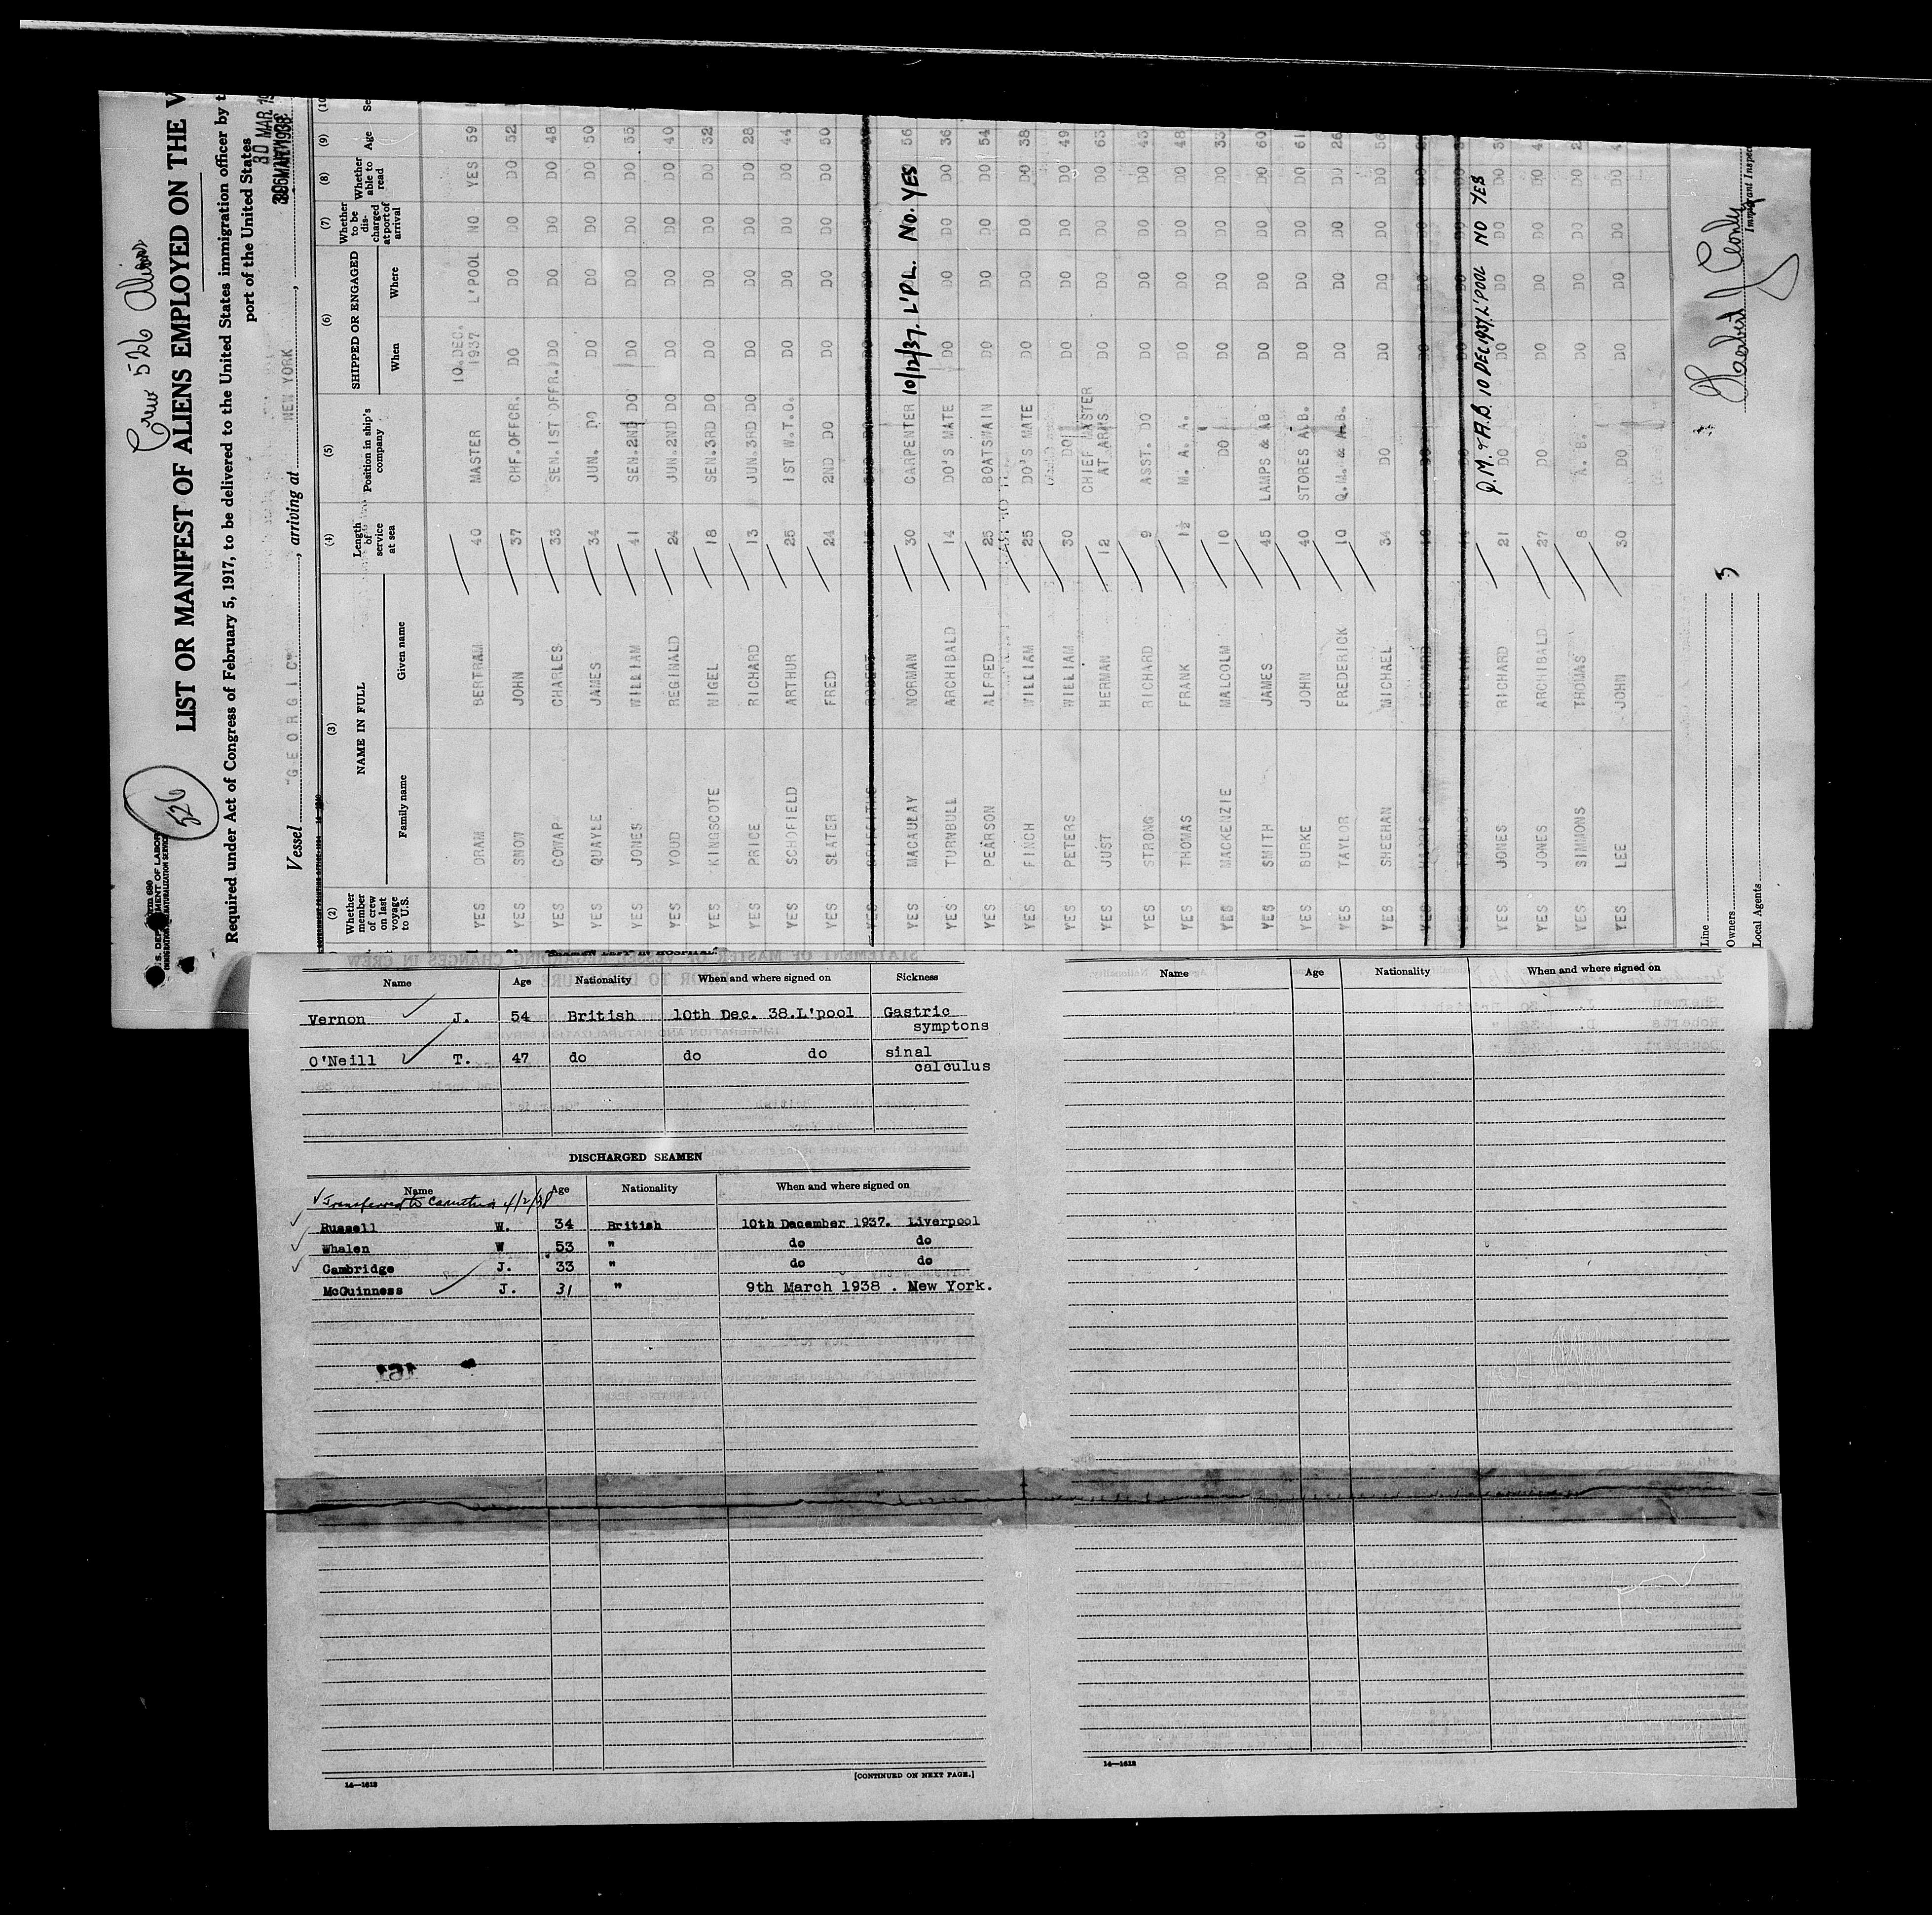 526
Crew 526 Aliens
LIST OR MANIFEST OF ALIENS EMPLOYED ON THE V
Required under Act of Congress of February 5, 1917, to be delivered to the United States immigration officer by t
port of the United States
Vessel "GEORGIC" , arriving at NEW YORK ,
30 MAR. 19
(2) (3) (4) (5) (6) (7) (8) (9) (10
Whether member of crew on last voyage to U.S. NAME IN FULL Family name Given name Length of service at sea Position in ship's company SHIPPED OR ENGAGED When Where Whether to be discharged at port of arrival Whether able to read Age Se
YES DRAM BERTRAM 40 MASTER 10.DEC. 1937 L'POOL NO YES 59
YES SNOW JOHN 37 CHF.OFFCR. DO DO DO DO 52
YES COWAP CHARLES 33 SEN.1ST OFFR. DO DO DO DO 48
YES QUAYLE JAMES 34 JUN. DO DO DO DO DO 50
YES JONES WILLIAM 41 SEN.2ND DO DO DO DO DO 55
YES YOUD REGINALD 24 JUN.2ND DO DO DO DO DO 40
YES KINGSCOTE NIGEL 18 SEN.3RD DO DO DO DO DO 32
YES PRICE RICHARD 13 JUN.3RD DO DO DO DO DO 28
YES SCHOFIELD ARTHUR 25 1ST W.T.O. DO DO DO DO 44
YES SLATER FRED 24 2ND DO DO DO DO DO 50
YES MACAULAY NORMAN 30 CARPENTER 10/12/37. L'P'L. No. YES 56
YES TURNBULL ARCHIBALD 14 DO'S MATE DO DO DO DO 36
YES PEARSON ALFRED 25 BOATSWAIN DO DO DO DO 54
YES FINCH WILLIAM 25 DO'S MATE DO DO DO DO 38
YES PETERS WILLIAM 30 DO DO DO DO DO 49
YES JUST HERMAN 12 CHIEF MASTER AT ARMS DO DO DO DO 63
YES STRONG RICHARD 9 ASST. DO DO DO DO DO 43
YES THOMAS FRANK 1½ M. A. A. DO DO DO DO 48
YES MACKENZIE MALCOLM 10 DO DO DO DO DO 33
YES SMITH JAMES 45 LAMPS & AB DO DO DO DO 60
YES BURKE JOHN 40 STORES A.B. DO DO DO DO 61
YES TAYLOR FREDERICK 10 Q.M. & A.B. DO DO DO DO 26
YES SHEEHAN MICHAEL 34 DO DO DO DO DO 56
Q.M. & A.B. 10 DEC 1937 L'POOL NO YES
YES JONES RICHARD 21 DO DO DO DO DO
YES JONES ARCHIBALD 27 DO DO DO DO DO
YES SIMMONS THOMAS 8 A. B. DO DO DO DO
YES LEE JOHN 30 DO DO DO DO DO
Line
Owners
Local Agents
3
Immigrant Inspec
SEAMEN LEFT IN HOSPITAL.
Name Age Nationality When and where signed on Sickness
Vernon J. 54 British 10th Dec. 38.L'pool Gastric
symptons
O'Neill T. 47 do do do sinal
calculus
DISCHARGED SEAMEN
Name Age Nationality When and where signed on
Russell W. 34 British 10th December 1937. Liverpool
Whalen W 53 " do do
Cambridge J. 33 " do do
McGuinness J. 31 " 9th March 1938 . New York.
14—1613
[CONTINUED ON NEXT PAGE.]
Name Age Nationality When and where signed on
14—1613